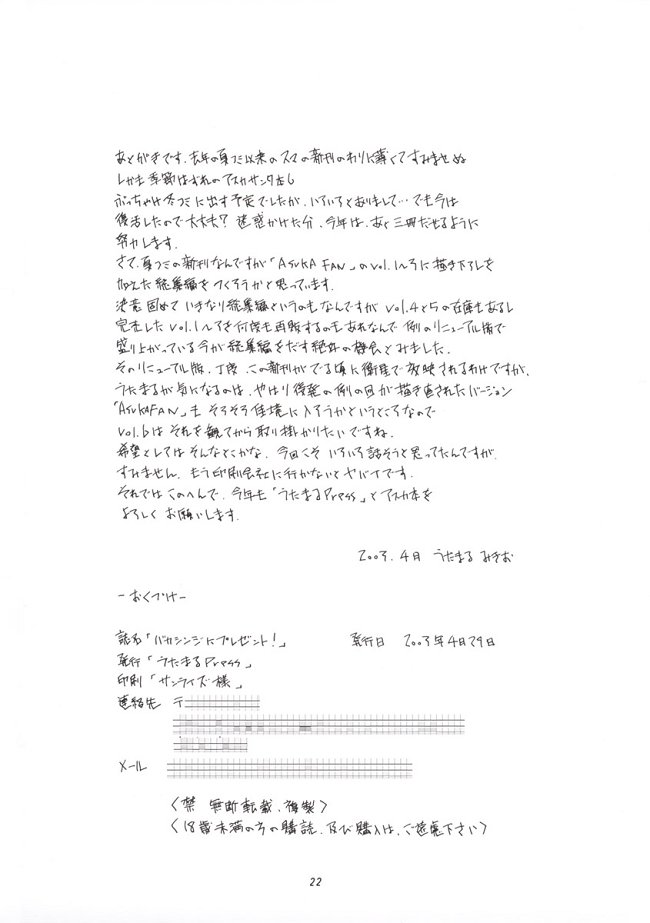 あとがきです。去年の夏コミ以来のアスカの新刊のわりに薄くてすみませぬ
しかも季節はずれのアスカサンタ本し
ぶっちゃけ冬コミに出す予定でしたが、いろいろとありまして…でも今は
復活したので大丈夫? 迷惑かけた分、今年は、あと三冊だせるように
努力します。
さて、夏コミの新刊なんですが「ASUKA FAN」のVol.1〜3に描き下ろしを
加えた総集編をつくろうかと思っています。
決意固めていきなり総集編というのもなんですが Vol.4と5の在庫もあるし
完売したVol.1〜3を何度も再販するのもあれなんで 例のリニューアル版で
盛り上がっている今が総集編をだす絶好の機会とみました。
そのリニューアル版、丁度、この新刊がでる頃に衛星で放映されるわけですが、
うたまるが気になるのは、やはり後発の例の回が描き直されたバージョン
「ASUKAFAN」も そろそろ佳境に入ろうかというところなので
Vol.6は それを観てから取り掛かりたいですね。
希望としてはそんなとこかな、今回こそ いろいろ話そうと思ってたんですが、
すみません、もう印刷会社に行かないとヤバイです。
それでは このへんで、今年も「うたまるPress」とアスカ本を
よろしく お願いします。
2003.4月 うたまる みきお
ーおくづけー
誌名「バカシンジにプレゼント!」 発行日 2003年4月29日
発行「うたまるPress」
印刷「サンライズ様」
連絡先 〒
メール
〈禁 無断転載、複製〉
〈18歳未満の方の購読、及び購入は、ご遠慮下さい〉
22